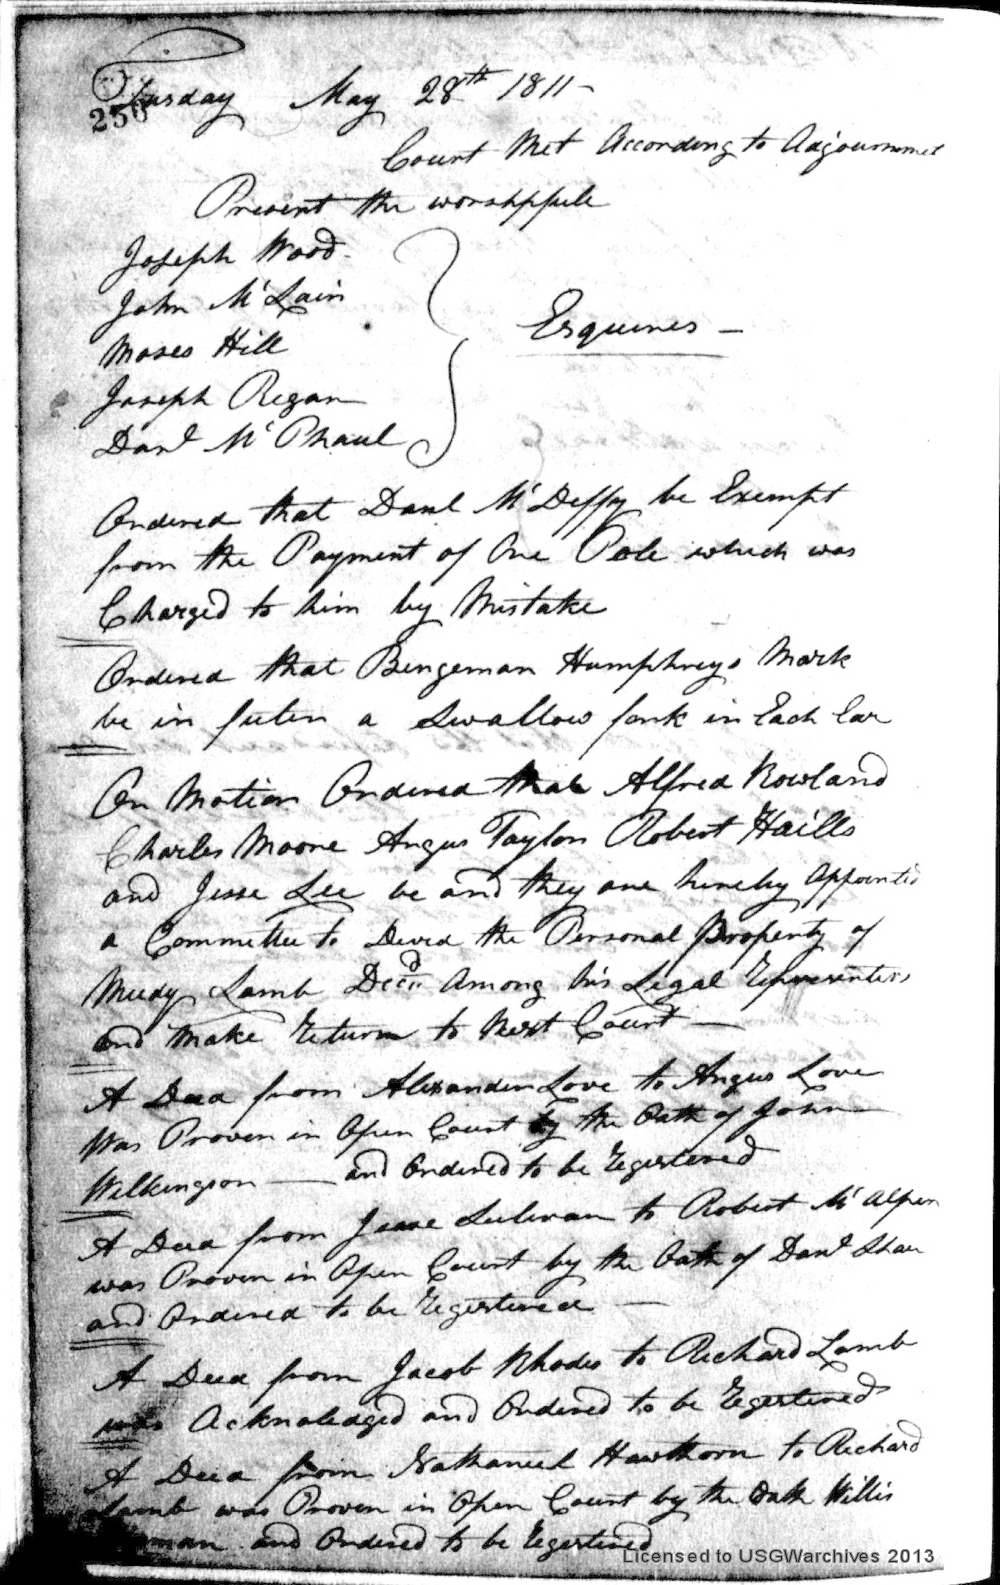 Tuesday May 28th 1811-
256
Court Met According to Adjournmet
Present the worshppfull
Joseph Wood
John Mc Lain
Moses Hill
Joseph Regan
Danl Mc Phaul
Esquires -
Ordered that Danl Mc Deffy be Exempt
from the Payment of One Pole which was
Charged to him by Mistake
Ordered that Bengeman Humphreys Mark
be in futer a Swallow fork in Each Ear
On Motion Ordered that Alfred Rowland
Charles Moore Angus Taylor Robert Haills
and Jesse Lee be and they are hereby Appointed
a Committee to Deved the Personal Property of
Meedy Lamb Decd Among his Legal Representers
and Make Return to Next Court -
A Deed from Alexander Love to Angus Love
Was Proven in Open Court by the Oath of John
Wilkingson - and Ordered to be Regestered
A Deed from Jesse Sulivan to Robert Mc Alpen
was Proven in Open Court by the Oath of Danl Shaw
and Ordered to be Regestered -
A Deed from Jacob Rhodes to Richard Lamb
was Acknoledged and Ordered to be Regestered
A Deed from Nathaniel Hawthorn to Richard
Lamb was Proven in Open Court by the Oath Willis
and Ordered to be Regestered
Licensed to USGWarchives 2013